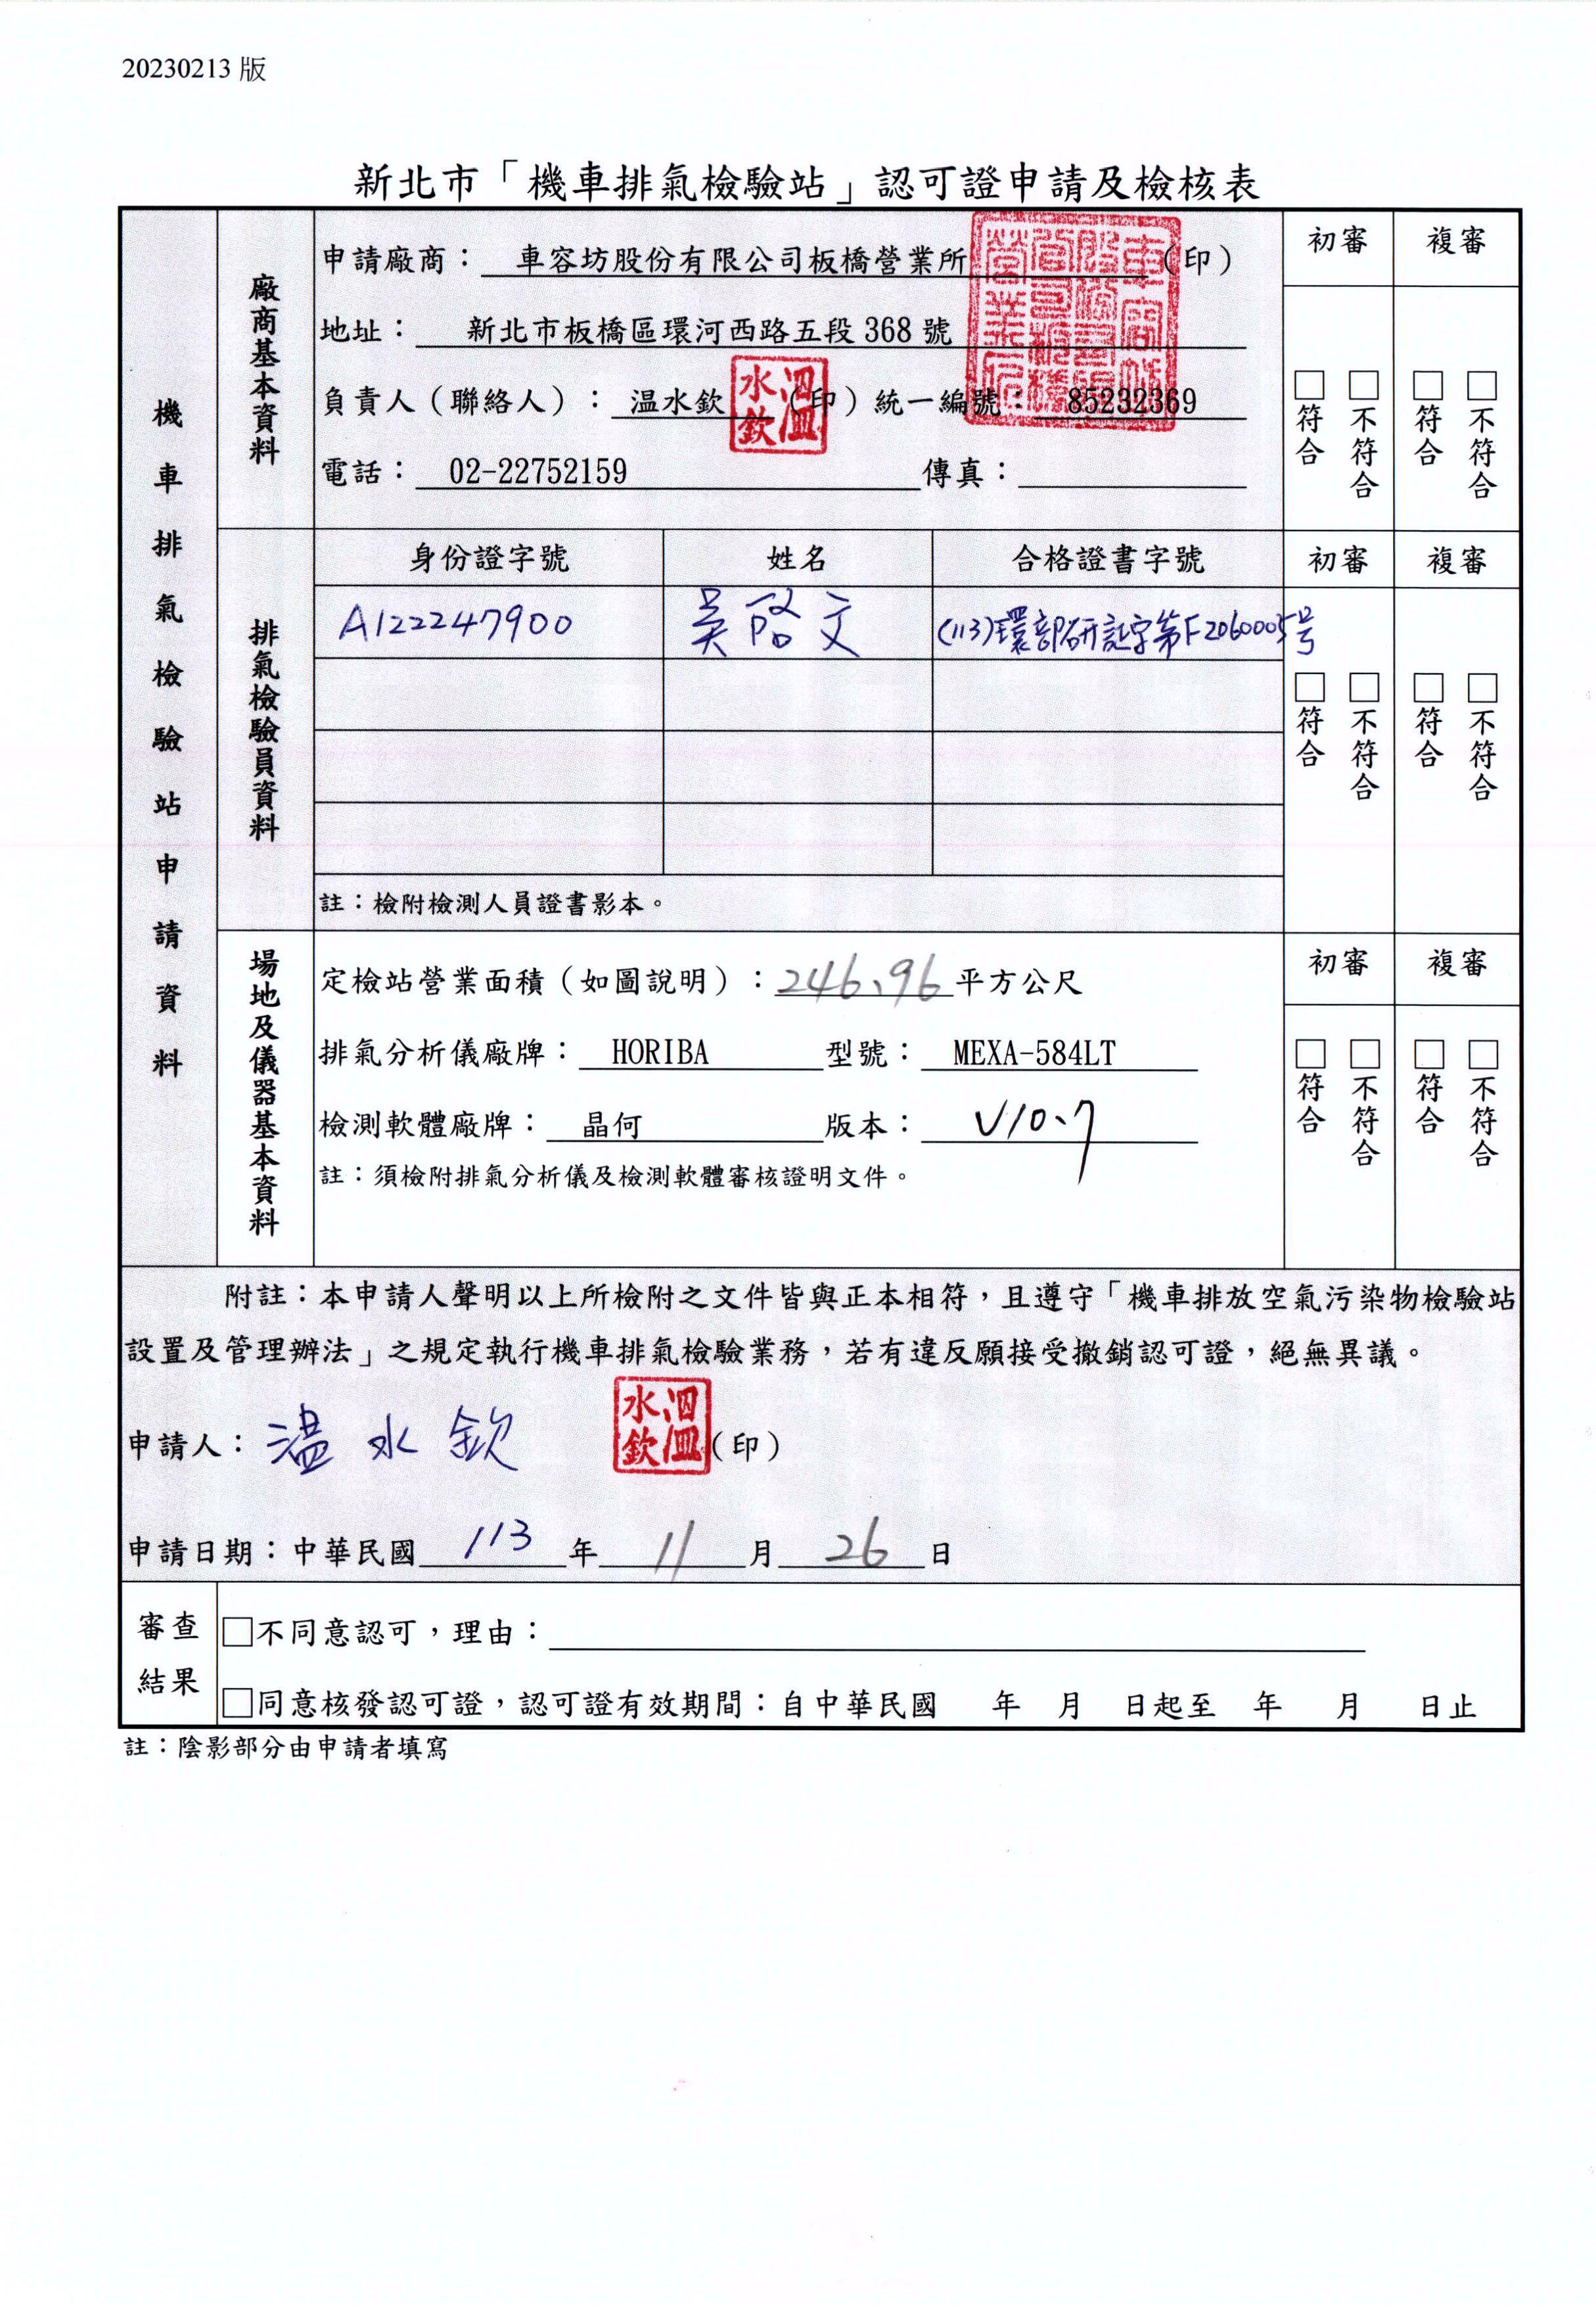 20230213 版
新北市「機車排氣檢驗站」認可證申請及檢核表
機車排氣檢驗站申請資料
廠商基本資料
申請廠商： 車容坊股份有限公司板橋營業所 （印）
地址： 新北市板橋區環河西路五段 368 號
負責人（聯絡人）： 温水欽 （印）統一編號： 85232369
電話： 02-22752159 傳真：
初審 複審
□符合 □不符合 □符合 □不符合
排氣檢驗員資料
身份證字號 姓名 合格證書字號 初審 複審
A122247900 吳啓文 (113)環部研証字第F2060005号
□符合 □不符合 □符合 □不符合
註：檢附檢測人員證書影本。
場地及儀器基本資料
定檢站營業面積（如圖說明）：246、96平方公尺
排氣分析儀廠牌： HORIBA 型號： MEXA-584LT
檢測軟體廠牌： 晶何 版本： V10、7
註：須檢附排氣分析儀及檢測軟體審核證明文件。
初審 複審
□符合 □不符合 □符合 □不符合
附註：本申請人聲明以上所檢附之文件皆與正本相符，且遵守「機車排放空氣污染物檢驗站
設置及管理辦法」之規定執行機車排氣檢驗業務，若有違反願接受撤銷認可證，絕無異議。
申請人： 溫水欽 （印）
申請日期：中華民國 113 年 11 月 26 日
審查結果
□不同意認可，理由：
□同意核發認可證，認可證有效期間：自中華民國 年 月 日起至 年 月 日止
註：陰影部分由申請者填寫